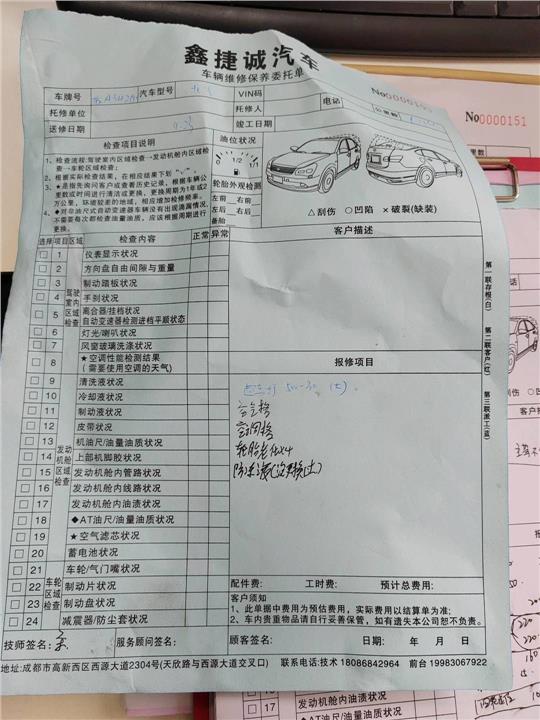 鑫捷诚汽车
车辆维修保养委托单
No0000151
车牌号 汽车型号 VIN码 电话 公里数
托修单位 托修人
送修日期 竣工日期
检查项目说明
1、检查流程:驾驶室内区域检查→发动机舱内区域检查→车轮区域检查;
根据实际检查结果,在相应结果下划"√"。
3、★是指先询问客户或查看历史记录,根据车辆公里数或时间进行清洁或更换,更换周期为1年或2万公里,环境较差的地域,相应增加检修频率。
◆对非油尺式自动变速器车辆没有出现滴漏情况,不需要每次都检查油量油质,应该根据周期进行更换。
油位状况
0 1/2 1/1
轮胎外观检测
左前 右前
左后 右后
备胎
△刮伤 ○凹陷 ×破裂(缺装)
选择 项目 区域 检查内容 正常 异常
客户描述
驾驶室内区域检查
1 仪表显示状况
2 方向盘自由间隙与重量
3 制动踏板状况
4 手刹状况
5 离合器/挂档状况
自动变速器检测进档平顺状态
6 灯光/喇叭状况
7 风窗玻璃洗涤状况
8 ★空调性能检测结果
(需要使用空调的天气)
报修项目
发动机舱区域检查
9 清洗液状况
10 冷却液状况
11 制动液状况
12 皮带状况
13 机油尺/油量油质状况
14 上部机脚胶状况
15 发动机舱内管路状况
16 发动机舱内线路状况
17 发动机舱内油渍状况
18 ◆AT油尺/油量油质状况
19 ★空气滤芯状况
20 蓄电池状况
车轮区域检查
21 车轮/气门嘴状况
22 制动片状况
23 制动盘状况
24 减震器/防尘套状况
空气格
空调格
轮胎老化x4
第一联存根(白)
第二联客户(红)
第三联派工(蓝)
配件费: 工时费: 预计总费用:
客户须知
1、此单据中费用为预估费用,实际费用以结算单为准;
2、车内贵重物品请自行妥善保管,如有遗失本公司恕不负责。
技师签名: 服务顾问签名: 顾客签名: 日期: 年 月 日
地址:成都市高新西区西源大道2304号(天欣路与西源大道交叉口) 联系电话:技术 18086842964 前台 19983067922